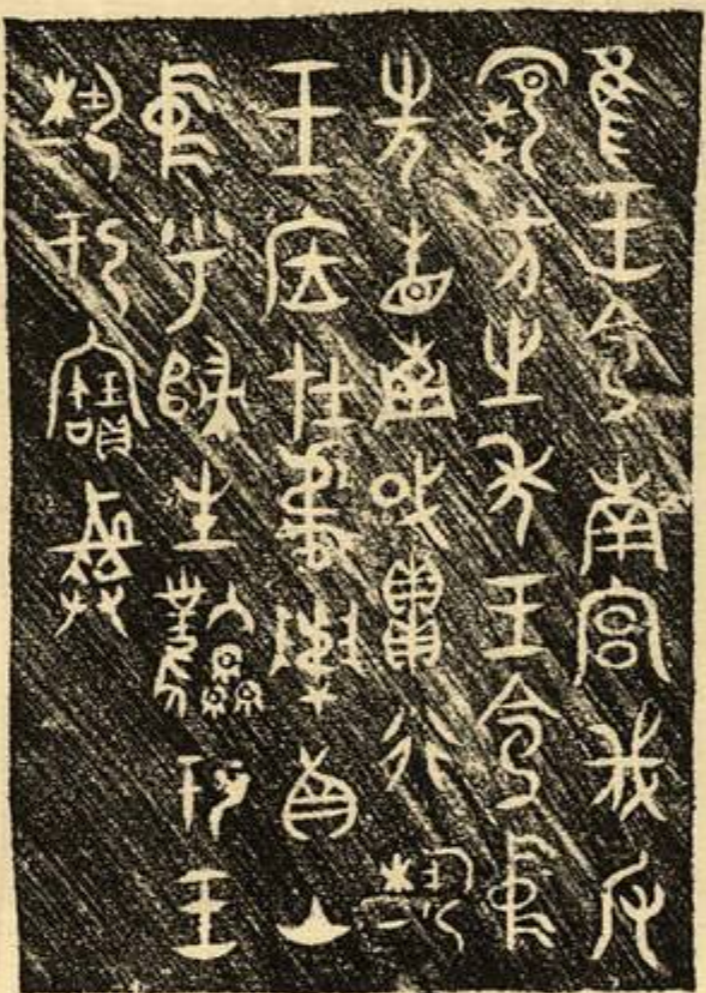 隹王令南宮伐反
虎方之年王令中
先省南或貫行埶
王㡴在夔山
中乎歸生鳳于王
埶于寶彝